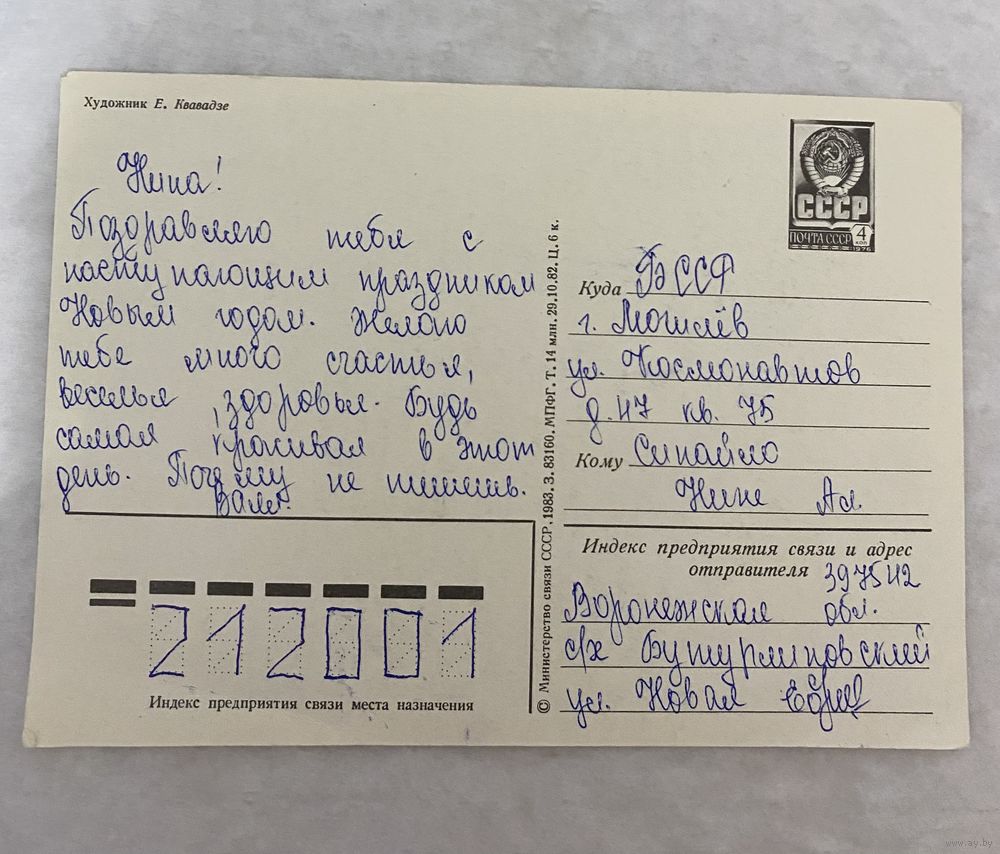 Художник Е. Квавадзе
Нина!
Поздравляю тебя с
наступающим праздником
Новым годом. Желаю
тебе много счастья,
веселья, здоровья. Будь
самая красивая в этот
день. Почему не пишешь.
Валя.
СССР
ПОЧТА СССР 4 КОП
1976
Куда БССР
г. Могилёв
ул. Космонавтов
д. 47 кв. 75
Кому Синайло
Нине Ал.
Индекс предприятия связи и адрес
отправителя 397542
Воронежская обл.
с/х Бутурлиновский
ул. Новая
212001
Индекс предприятия связи места назначения
© Министерство связи СССР. 1983. З. 83160. МПФГ. Т. 14 млн. 29.10.82. Ц. 6 к.
www.ay.by